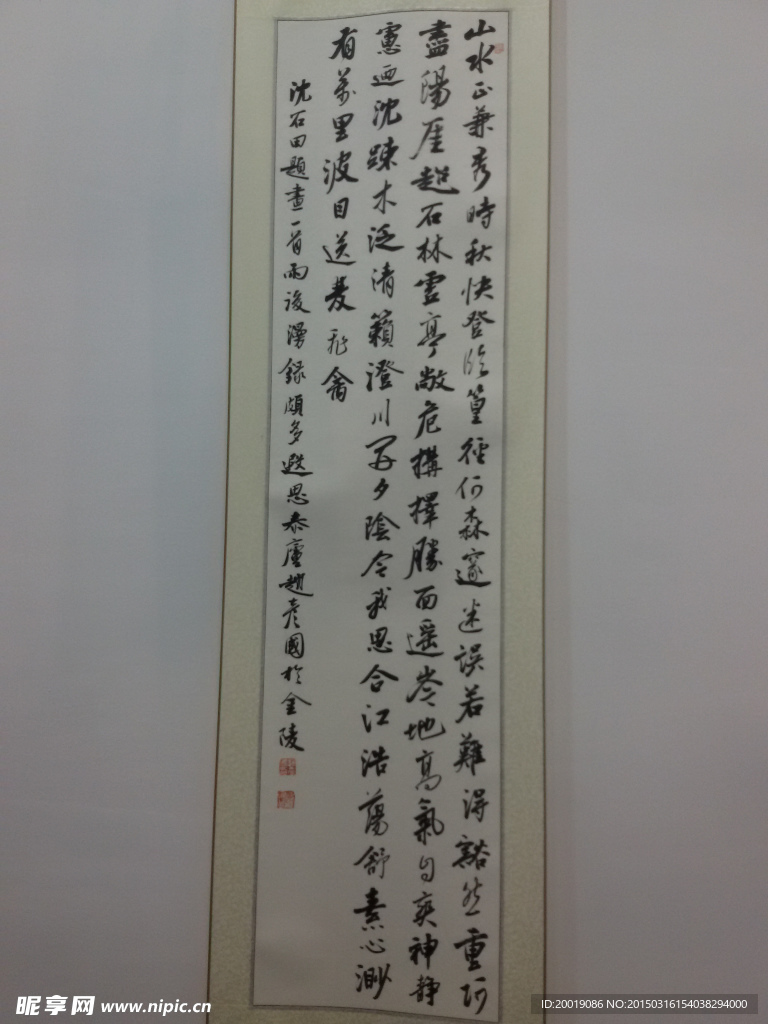 山水正兼秀時秋快登臨篁徑何森邃迷誤若難得豁然重阿
盡陽厓超石林雲亭敞危構擇勝面遥岑地高氣自爽神静
慮逈沈疎木泛清籟澄川写夕陰令我思合江浩蕩舒素心渺
有萬里波目送飛禽
沈石田題畫一首雨後漫録頗多遐思泰廬趙彦國於金陵
昵享网 www.nipic.cn
ID:20019086 NO:20150316154038294000